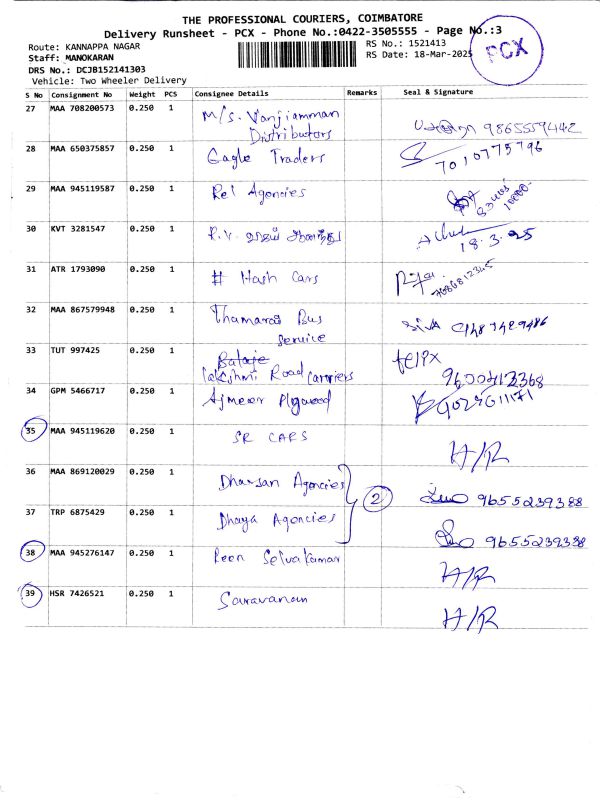 THE PROFESSIONAL COURIERS, COIMBATORE
Delivery Runsheet - PCX - Phone No.:0422-3505555 - Page No.:3
Route: KANNAPPA NAGAR RS No.: 1521413
Staff: MANOKARAN RS Date: 18-Mar-2025
PCX
DRS No.: DCJB152141303
Vehicle: Two Wheeler Delivery
S No Consignment No Weight PCS Consignee Details Remarks Seal & Signature
27 MAA 708200573 0.250 1 M/s. Vanjiamman
Distributors 9865559442
28 MAA 650375857 0.250 1 Eagle Traders 7010775796
29 MAA 945119587 0.250 1 Rel Agencies
30 KVT 3281547 0.250 1 R.V. 18.3.25
31 ATR 1793090 0.250 1 # Hash Cars 7686812345
32 MAA 867579948 0.250 1 Thamarai Bus
Service
33 TUT 997425 0.250 1 Lakshmi Road Carriers 9600412368
34 GPM 5466717 0.250 1 Ajmeer Plywood
35 MAA 945119620 0.250 1 SR CARS H/R
36 MAA 869120029 0.250 1 Dharsan Agencies 2 9655239388
37 TRP 6875429 0.250 1 Dhaya Agencies 9655239388
38 MAA 945276147 0.250 1 Reen Selvakumar H/R
39 HSR 7426521 0.250 1 Saravanan H/R